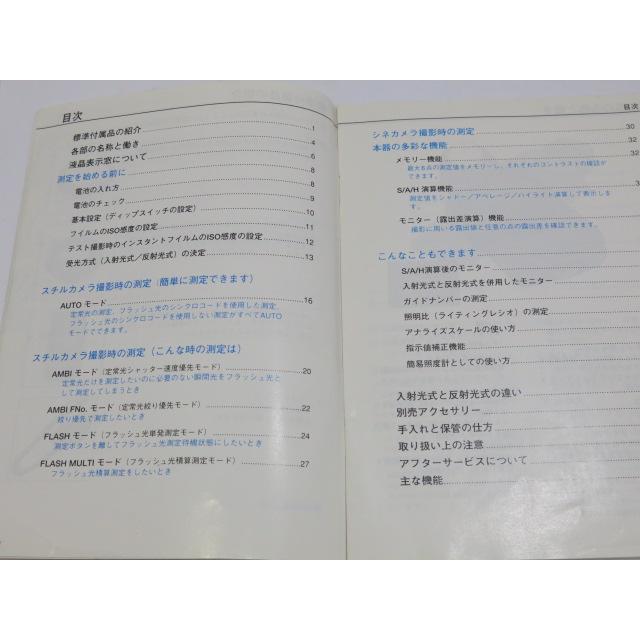 目次
標準付属品の紹介 1
各部の名称と働き 4
液晶表示窓について 6
測定を始める前に 8
電池の入れ方 8
電池のチェック 9
基本設定（ディップスイッチの設定） 10
フイルムのISO感度の設定 11
テスト撮影時のインスタントフイルムのISO感度の設定 12
受光方式（入射光式／反射光式）の決定 13
スチルカメラ撮影時の測定（簡単に測定できます）
AUTO モード 16
定常光の測定、フラッシュ光のシンクロコードを使用した測定、
フラッシュ光のシンクロコードを使用しない測定がすべてAUTO
モードでできます。
スチルカメラ撮影時の測定（こんな時の測定は）
AMBI モード（定常光シャッター速度優先モード） 20
定常光だけを測定したいのに必要のない瞬間光をフラッシュ光と
して測定してしまうとき
AMBI FNo. モード（定常光絞り優先モード） 22
絞り優先で測定したいとき
FLASH モード（フラッシュ光単発測定モード） 24
測定ボタンを離してフラッシュ光測定待機状態にしたいとき
FLASH MULTI モード（フラッシュ光積算測定モード） 27
フラッシュ光積算測定をしたいとき
目次
シネカメラ撮影時の測定 30
本器の多彩な機能 32
メモリー機能 32
最大8点の測定値をメモリーし、それぞれのコントラストの確認が
できます。
S/A/H 演算機能 3
測定値をシャドー／アベレージ／ハイライト演算して表示しま
す。
モニター（露出差演算）機能
撮影に用いる露出値と任意の点の露出差を確認できます。
こんなこともできます
S/A/H演算後のモニター
入射光式と反射光式を併用したモニター
ガイドナンバーの測定
照明比（ライティングレシオ）の測定
アナライズスケールの使い方
指示値補正機能
簡易照度計としての使い方
入射光式と反射光式の違い
別売アクセサリー
手入れと保管の仕方
取り扱い上の注意
アフターサービスについて
主な機能